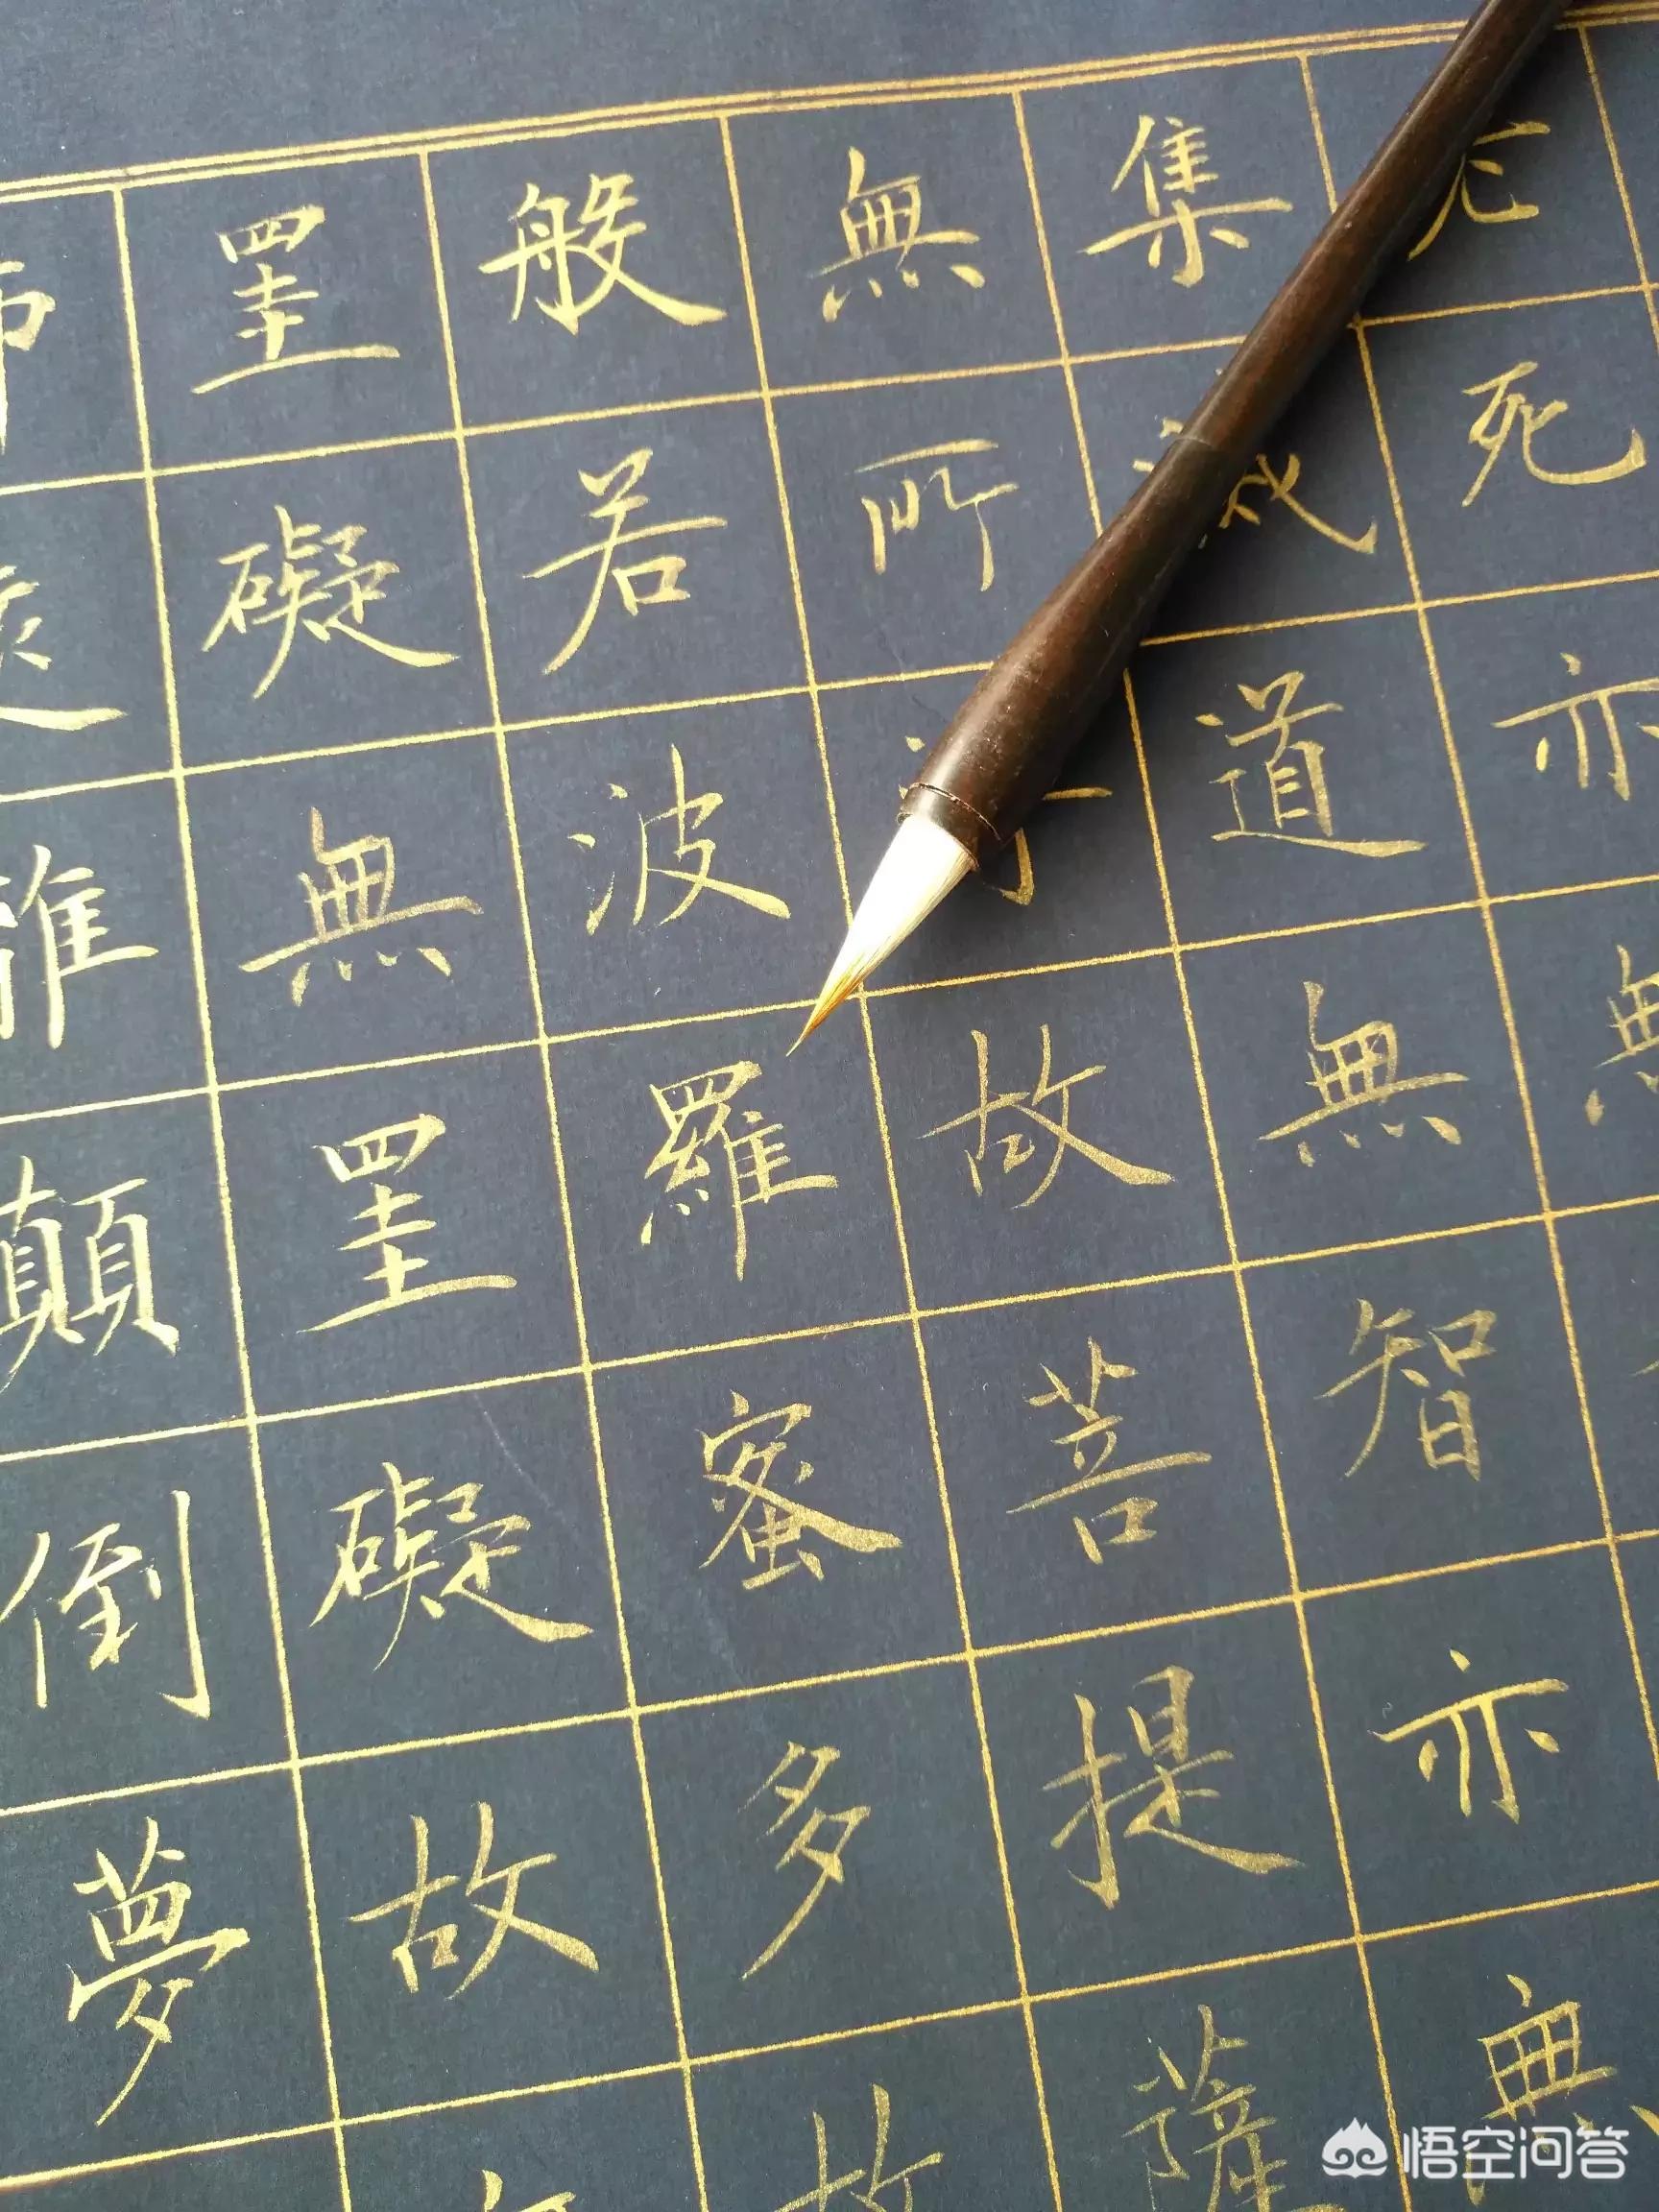 死亦無
集滅道無智亦無
無所得故菩提薩
般若波羅蜜多故
罣礙無罣礙故
怖遠離顛倒夢
悟空问答